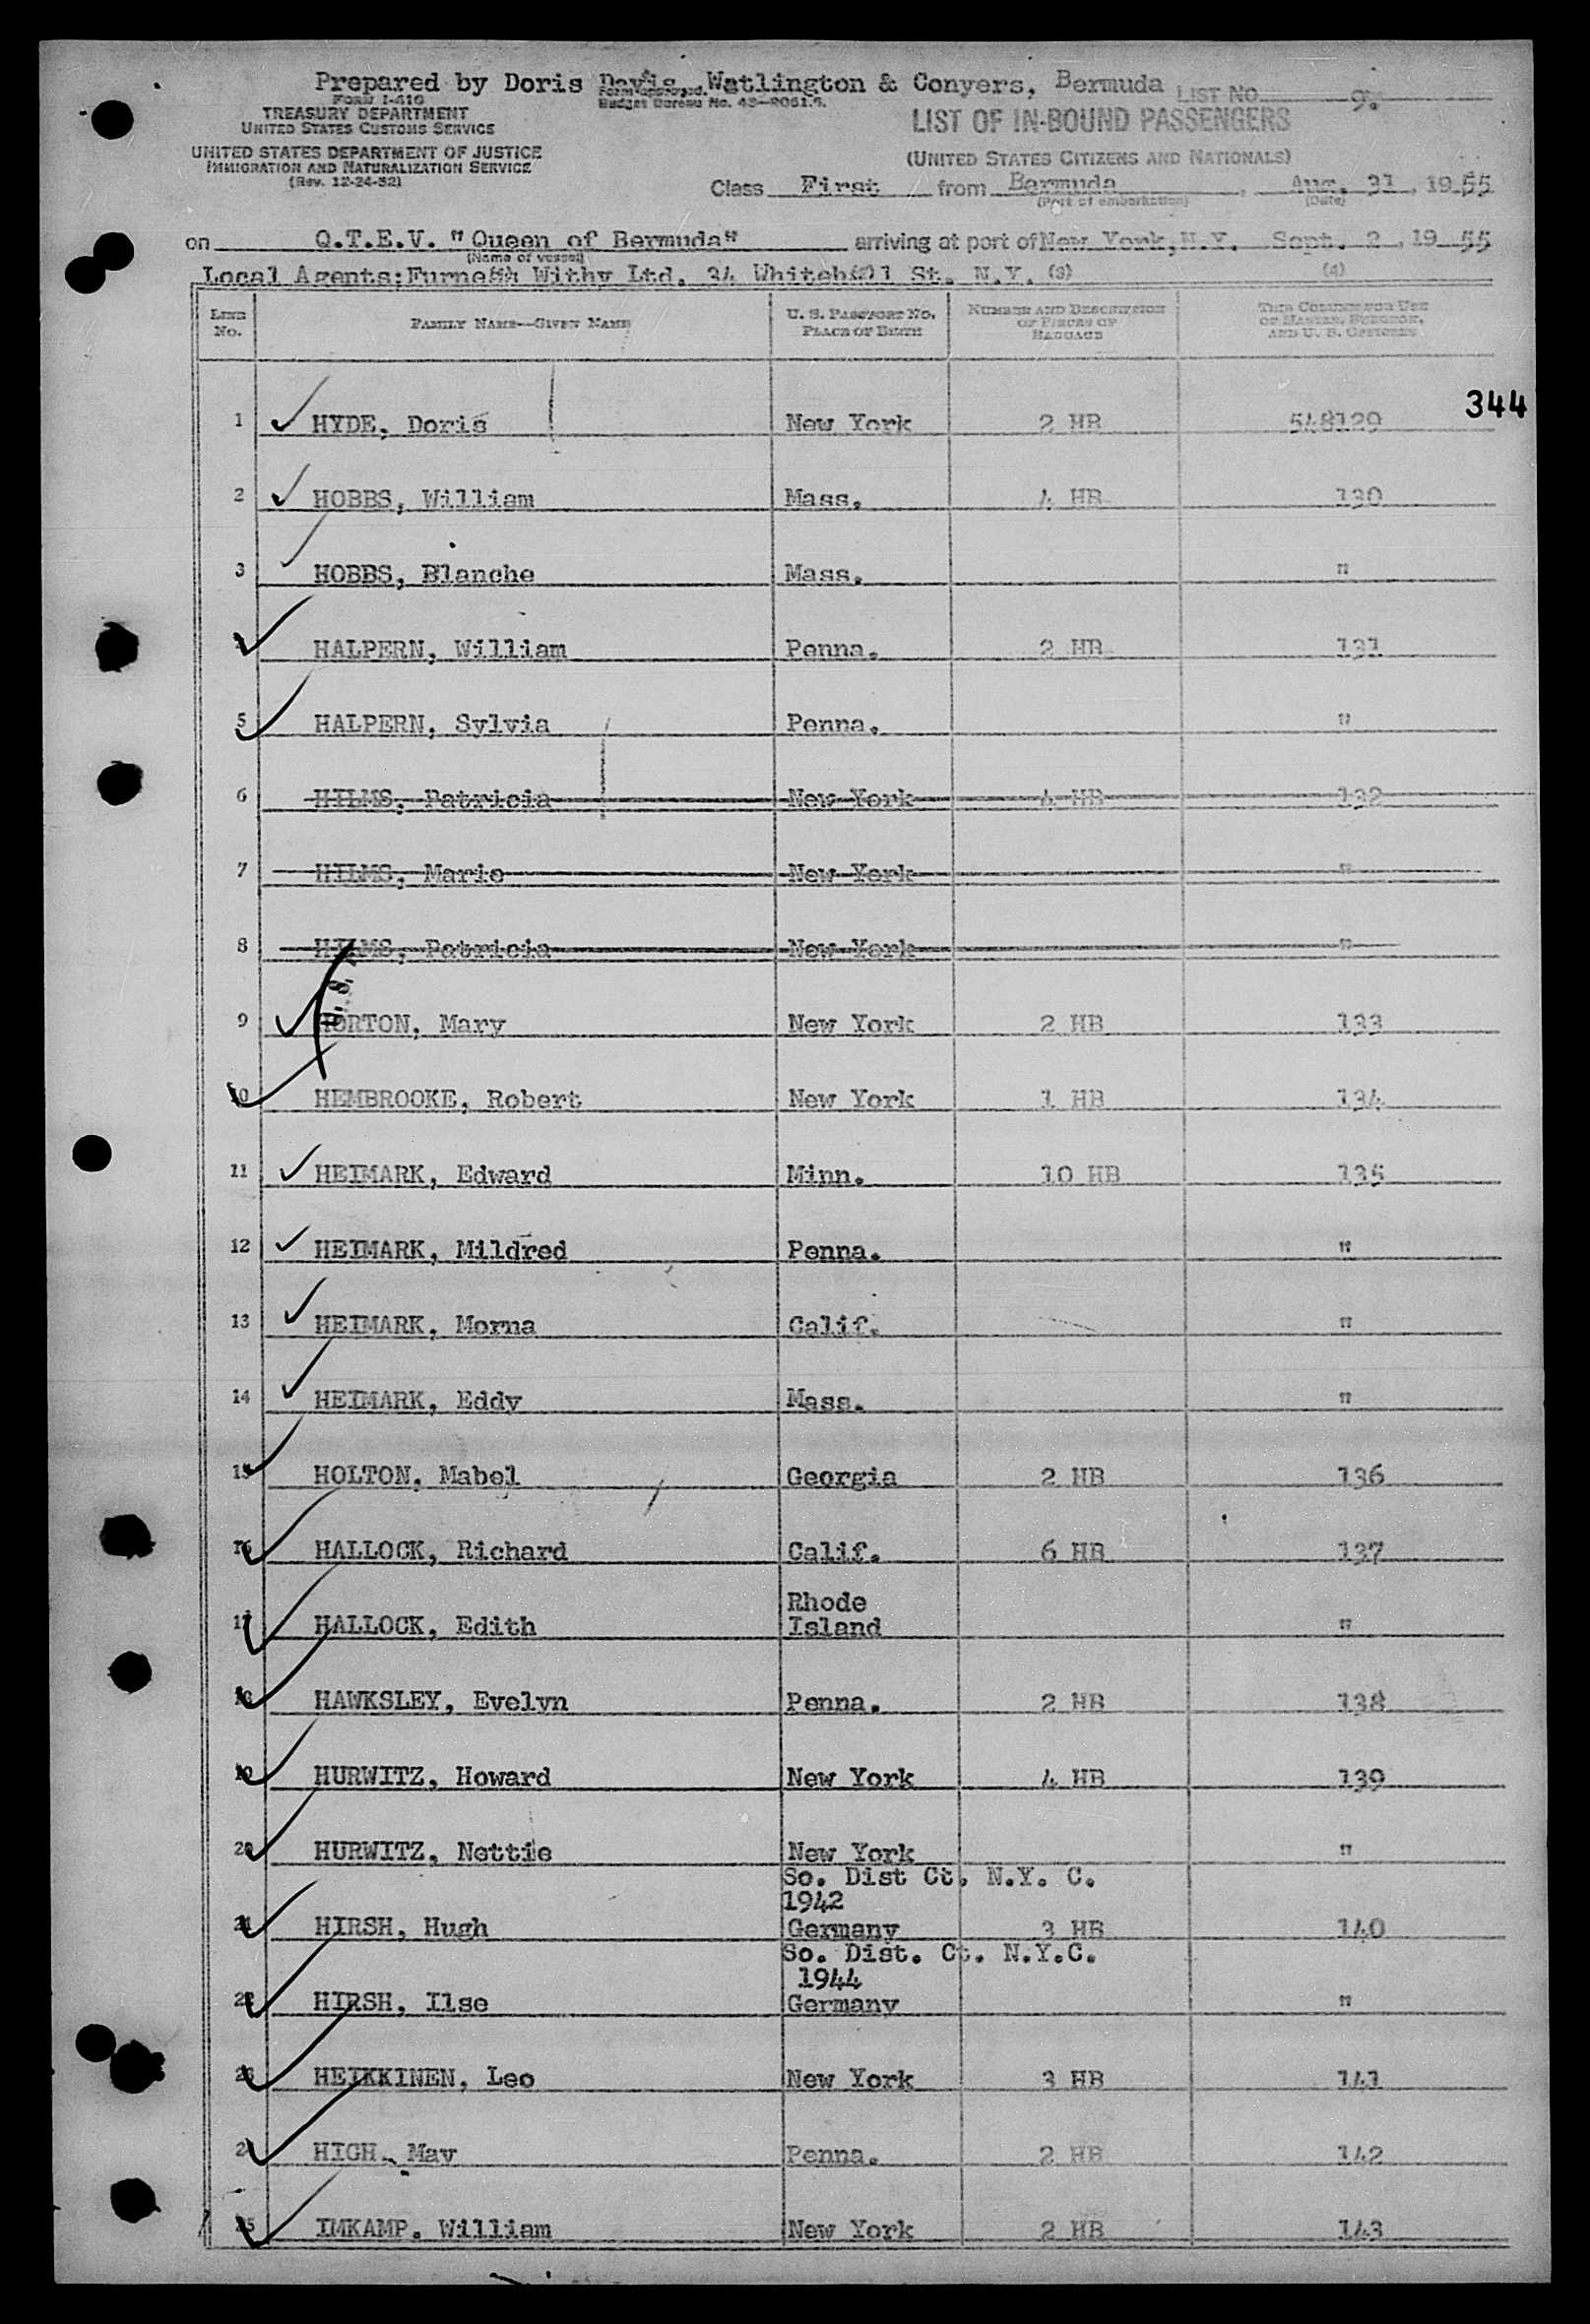 Prepared by Doris Davis, Watlington & Conyers, Bermuda
Form approved.
Budget Bureau No. 43—R061.4.
LIST NO. 9.
FORM I-416
TREASURY DEPARTMENT
UNITED STATES CUSTOMS SERVICE
UNITED STATES DEPARTMENT OF JUSTICE
IMMIGRATION AND NATURALIZATION SERVICE
(Rev. 12-24-52)
LIST OF IN-BOUND PASSENGERS
(UNITED STATES CITIZENS AND NATIONALS)
Class First from Bermuda, Aug. 31, 1955
(Port of embarkation) (Date)
on Q.T.E.V. "Queen of Bermuda" arriving at port of New York, N.Y. Sept. 2, 1955
(Name of vessel)
Local Agents; Furness Withy Ltd. 34 Whitehall St. N.Y. (3) (4)
LINE No. FAMILY NAME—GIVEN NAME U. S. PASSPORT NO. PLACE OF BIRTH NUMBER AND DESCRIPTION OF PIECES OF BAGGAGE THIS COLUMN FOR USE OF MASTER, SURGEON, AND U. S. OFFICERS
344
1 HYDE, Doris New York 2 HB 548129
2 HOBBS, William Mass. 4 HB 130
3 HOBBS, Blanche Mass. "
4 HALPERN, William Penna. 2 HB 131
5 HALPERN, Sylvia Penna. "
6 HILMS, Patricia New York 4 HB 132
7 HILMS, Marie New York "
8 HILMS, Patricia New York "
U.S.
9 HORTON, Mary New York 2 HB 133
10 HEMBROOKE, Robert New York 1 HB 134
11 HEIMARK, Edward Minn. 10 HB 135
12 HEIMARK, Mildred Penna. "
13 HEIMARK, Morna Calif. "
14 HEIMARK, Eddy Mass. "
15 HOLTON, Mabel Georgia 2 HB 136
16 HALLOCK, Richard Calif. 6 HB 137
Rhode
17 HALLOCK, Edith Island "
18 HAWKSLEY, Evelyn Penna. 2 HB 138
19 HURWITZ, Howard New York 4 HB 139
20 HURWITZ, Nettie New York "
So. Dist Ct. N.Y. C.
1942
21 HIRSH, Hugh Germany 3 HB 140
So. Dist. Ct. N.Y.C.
1944
22 HIRSH, Ilse Germany "
23 HEIKKINEN, Leo New York 3 HB 141
24 HIGH, May Penna. 2 HB 142
25 IMKAMP, William New York 2 HB 143